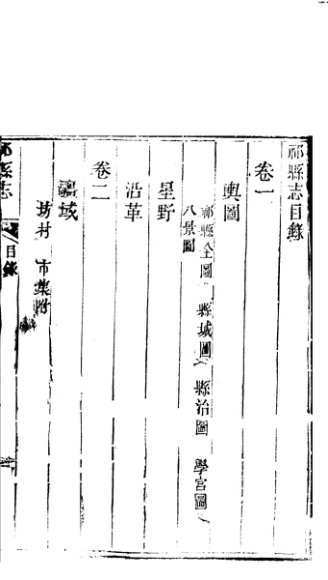 祁縣志目錄
卷一
輿圖
祁縣全圖 縣城圖 縣治圖 學宮圖
八景圖
星野
沿革
卷二
疆域
坊村 市集附
祁縣志 目錄